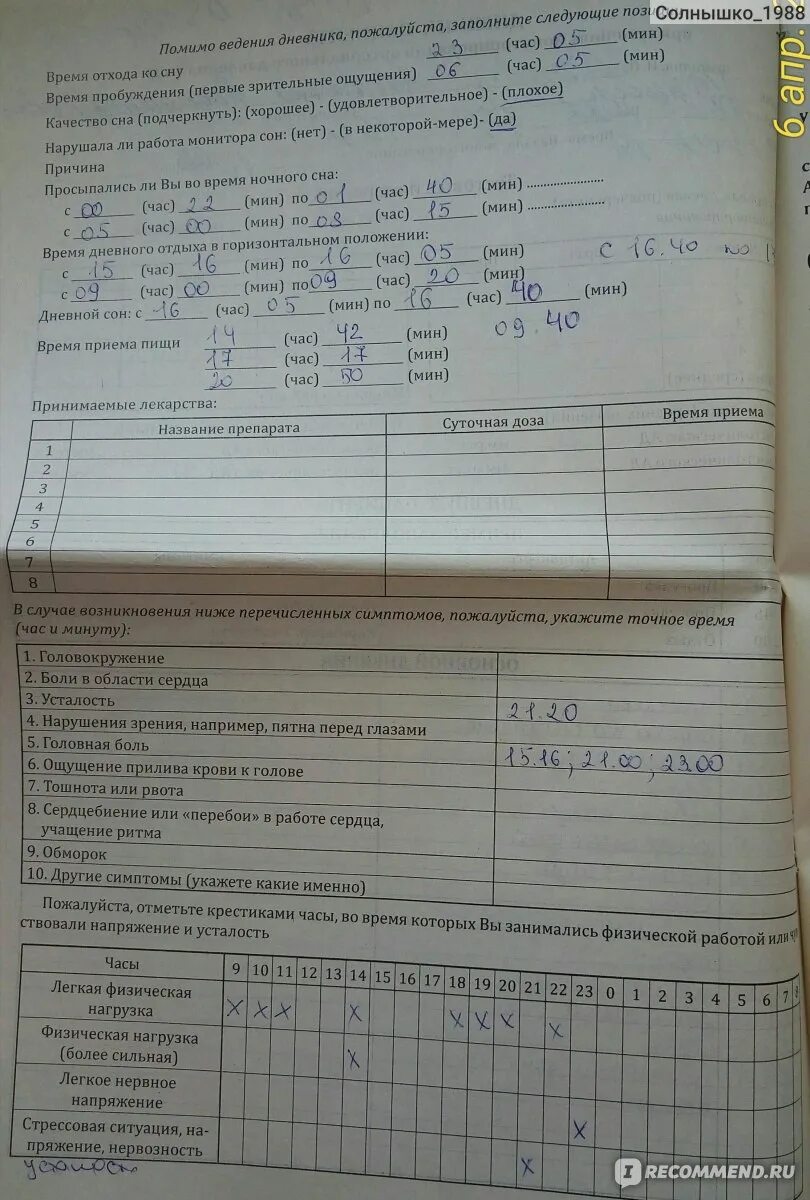 Солнышко_1988
6 апр. 2
Помимо ведения дневника, пожалуйста, заполните следующие
Время отхода ко сну 23 (час) 05 (мин)
Время пробуждения (первые зрительные ощущения) 06 (час) 05 (мин)
Качество сна (подчеркнуть): (хорошее) - (удовлетворительное) - (плохое)
Нарушала ли работа монитора сон: (нет) - (в некоторой-мере)- (да)
Причина
Просыпались ли Вы во время ночного сна:
с 00 (час) 22 (мин) по 01 (час) 40 (мин) ....................
с 05 (час) 00 (мин) по 03 (час) 15 (мин) ....................
Время дневного отдыха в горизонтальном положении:
с 15 (час) 16 (мин) по 16 (час) 05 (мин) с 16.40 по
с 09 (час) 00 (мин) по 09 (час) 20 (мин)
Дневной сон: с 16 (час) 05 (мин) по 16 (час) 40 (мин)
Время приема пищи 14 (час) 42 (мин) 09.40
17 (час) 17 (мин)
20 (час) 50 (мин)
Принимаемые лекарства:
Название препарата Суточная доза Время приема
1
2
3
4
5
6
7
8
В случае возникновения ниже перечисленных симптомов, пожалуйста, укажите точное время
(час и минуту):
1. Головокружение
2. Боли в области сердца
3. Усталость 21.20
4. Нарушения зрения, например, пятна перед глазами
5. Головная боль 15.16; 21.00; 23.00
6. Ощущение прилива крови к голове
7. Тошнота или рвота
8. Сердцебиение или «перебои» в работе сердца,
учащение ритма
9. Обморок
10. Другие симптомы (укажете какие именно)
Пожалуйста, отметьте крестиками часы, во время которых Вы занимались физической работой или
ствовали напряжение и усталость
Часы 9 10 11 12 13 14 15 16 17 18 19 20 21 22 23 0 1 2 3 4 5 6 7
Легкая физическая нагрузка х х х х х х х х
Физическая нагрузка (более сильная) х
Легкое нервное напряжение
Стрессовая ситуация, на-
пряжение, нервозность х
усталость х
IRECOMMEND.RU